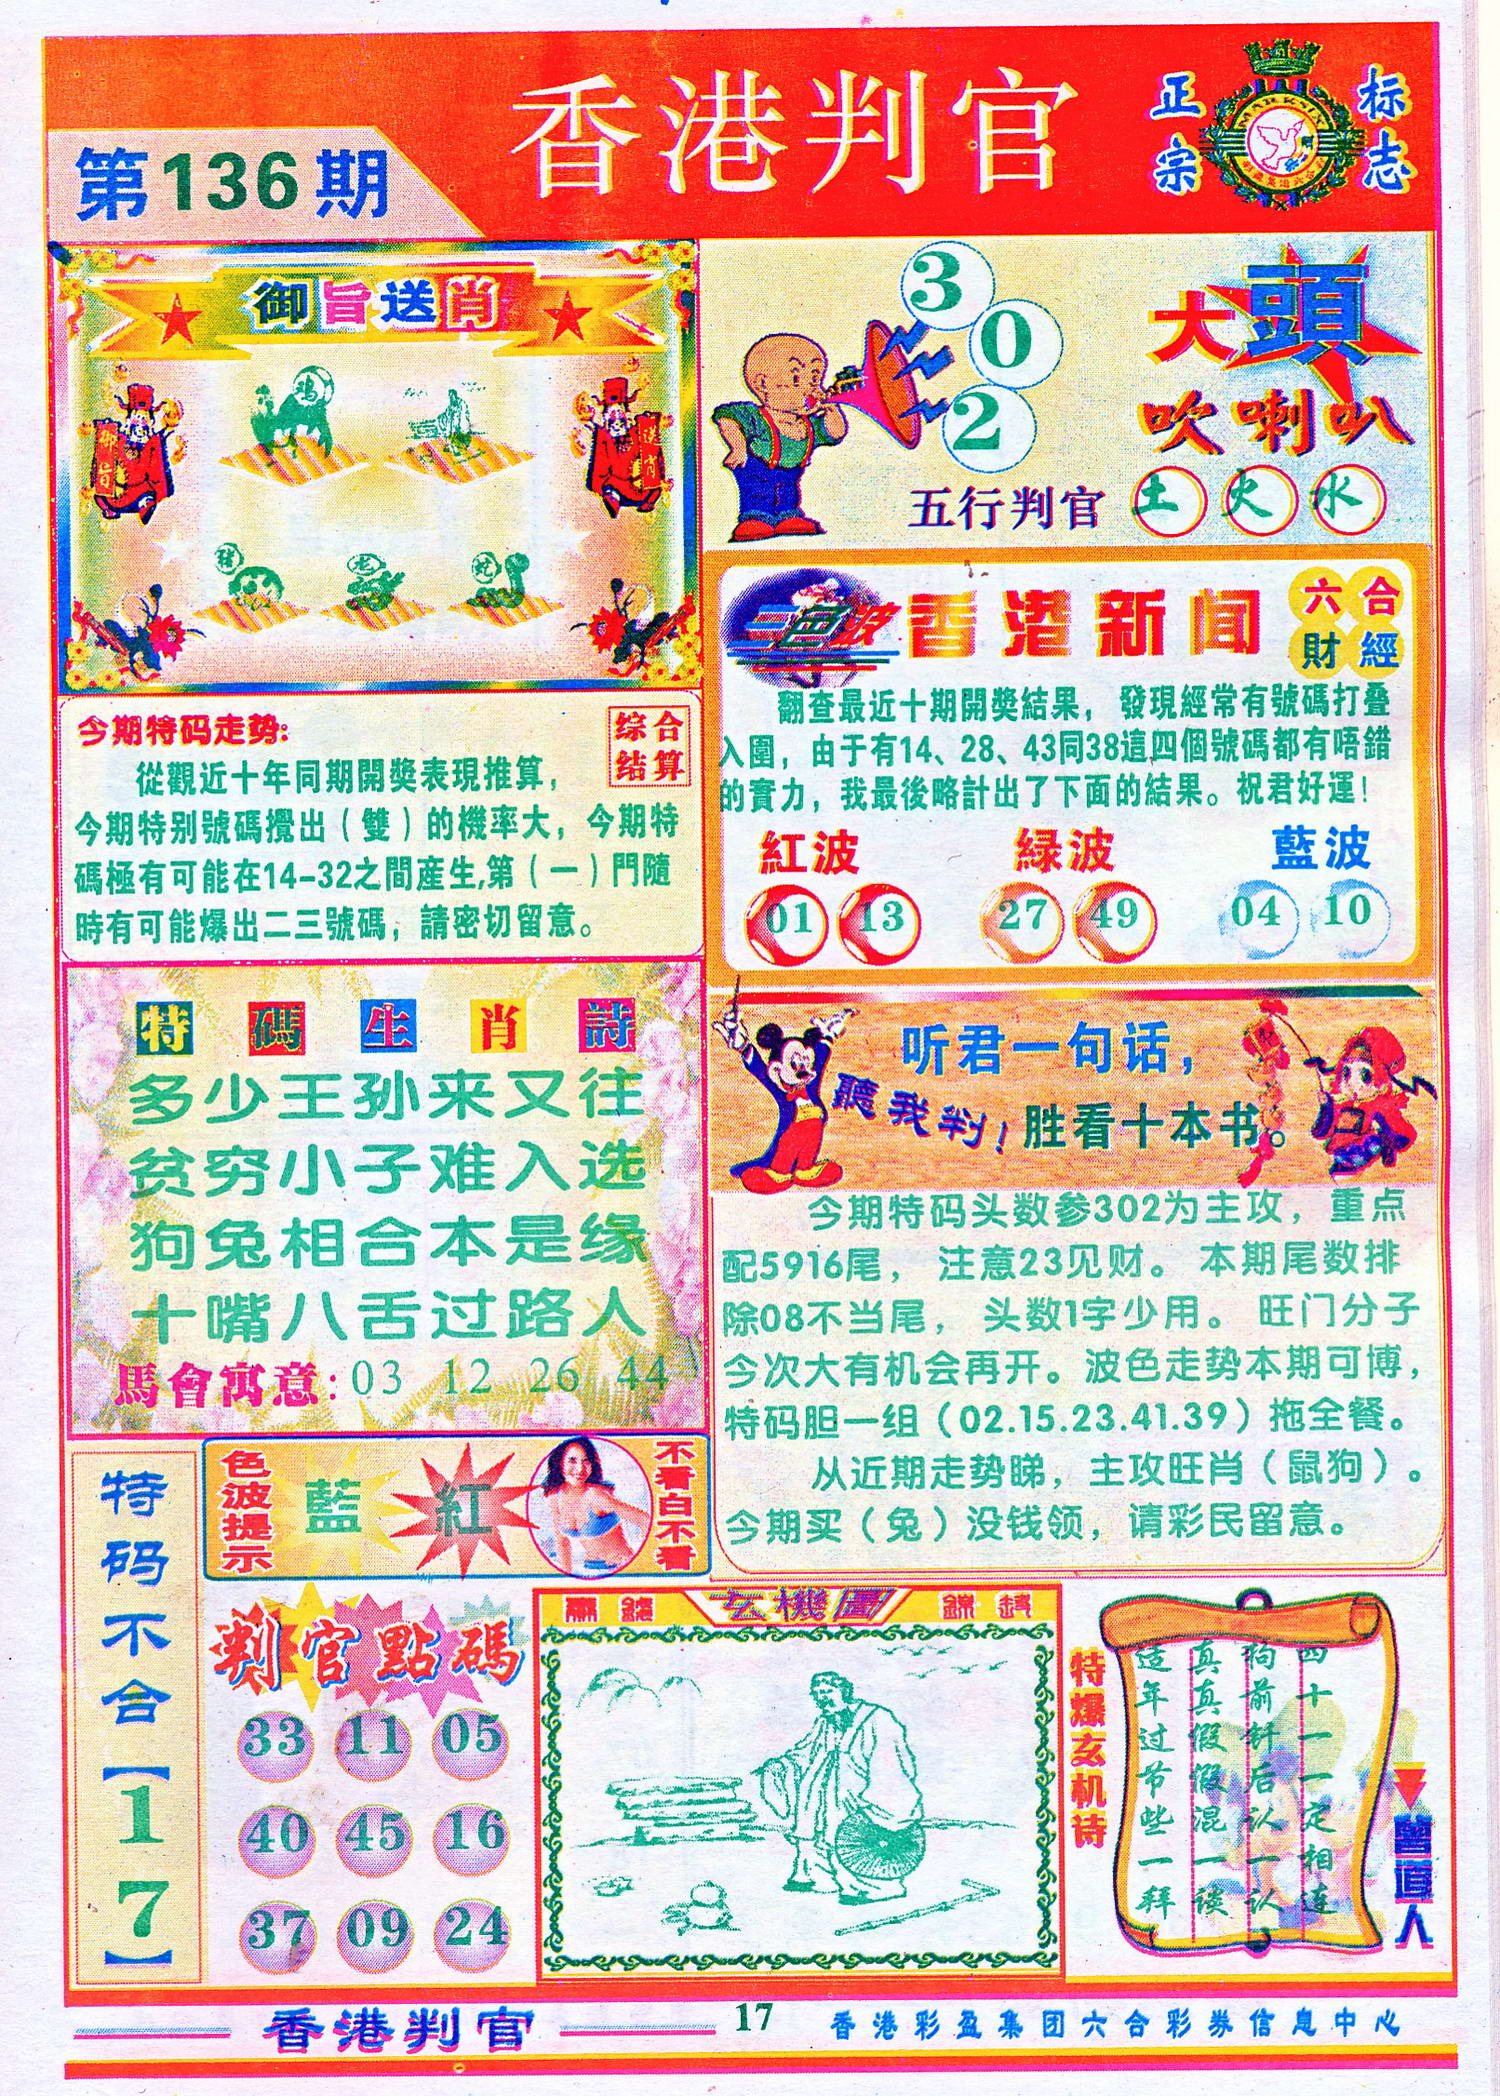 香港判官
正宗
标志
第136期
御旨送肖
御旨
送肖
鸡
猪
蛇
3
0
2
大頭
吹喇叭
五行判官
土 火 水
今期特码走势:
综合
结算
從觀近十年同期開獎表現推算，
今期特别號碼攪出（雙）的機率大，今期特
碼極有可能在14-32之間産生,第（一）門隨
時有可能爆出二三號碼，請密切留意。
三色波
香港新闻
六合
財經
翻查最近十期開獎結果，發現經常有號碼打叠
入圍，由于有14、28、43同38這四個號碼都有唔錯
的實力，我最後略計出了下面的結果。祝君好運！
紅波 緑波 藍波
01 13 27 49 04 10
特碼生肖詩
多少王孙来又往
贫穷小子难入选
狗兔相合本是缘
十嘴八舌过路人
馬會寓意:03 12 26 44
聽我判！
听君一句话，
胜看十本书。
今期特码头数参302为主攻，重点
配5916尾，注意23见财。本期尾数排
除08不当尾，头数1字少用。旺门分子
今次大有机会再开。波色走势本期可博，
特码胆一组（02.15.23.41.39）拖全餐。
从近期走势睇，主攻旺肖（鼠狗）。
今期买（兔）没钱领，请彩民留意。
特码不合【17】
色波提示
藍
紅
不看白不看
判官點碼
33 11 05
40 45 16
37 09 24
玄機圖
特爆玄机诗
四十一一定相连
狗前轩后认一认
真真假假混一谈
适年过节些一拜
曾道人
香港判官
17
香港彩盈集团六合彩券信息中心